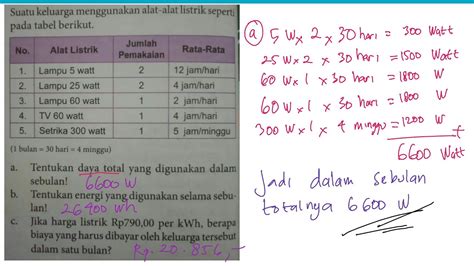 Suatu keluarga menggunakan alat-alat listrik seperti
pada tabel berikut.
No. Alat Listrik Jumlah Pemakaian Rata-Rata
1. Lampu 5 watt 2 12 jam/hari
2. Lampu 25 watt 2 4 jam/hari
3. Lampu 60 watt 2 2 jam/hari
4. TV 60 watt 1 4 jam/hari
5. Setrika 300 watt 1 5 jam/minggu
(1 bulan = 30 hari = 4 minggu)
a. Tentukan daya total yang digunakan dalam
sebulan! 6600 W
b. Tentukan energi yang digunakan selama sebu-
lan! 26400 Wh
c. Jika harga listrik Rp790,00 per kWh, berapa
biaya yang harus dibayar oleh keluarga tersebut
dalam satu bulan? Rp. 20.856,-
a 5 W x 2 x 30 hari = 300 Watt
25 W x 2 x 30 hari = 1500 Watt
60 W x 1 x 30 hari = 1800 W
60 W x 1 x 30 hari = 1800 W
300 W x 1 x 4 minggu = 1200 W
+
6600 Watt
Jadi dalam sebulan
totalnya 6600 W